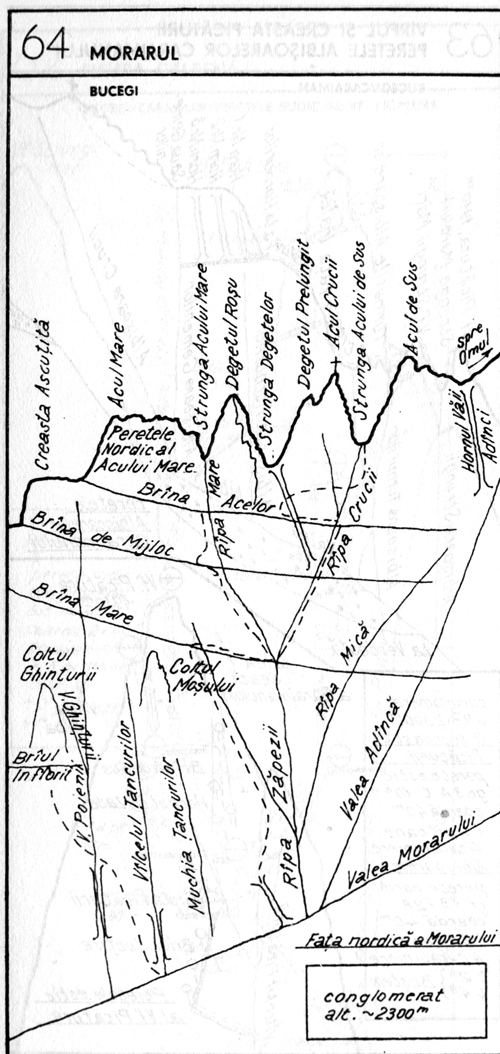 64 MORARUL
BUCEGI
Creasta Ascuțită
Acul Mare
Strunga Acului Mare
Degetul Roșu
Strunga Degetelor
Degetul Prelungit
Acul Crucii
Strunga Acului de Sus
Acul de Sus
spre
Omul
Hornul Văii
Adînci
Peretele
Nordic al
Acului Mare
Brîna Acelor
Rîpa Mare
Rîpa Crucii
Brîna de Mijloc
Brîna Mare
Colțul
Ghinturii
V. Ghinturii
Colțul
Moșului
Brîul
Înflorit
V. Poienii
Vîlcelul Țancurilor
Muchia Țancurilor
Rîpa Zăpezii
Rîpa Mică
Valea Adîncă
Valea Morarului
Fața nordică a Morarului
conglomerat
alt. ~2300m